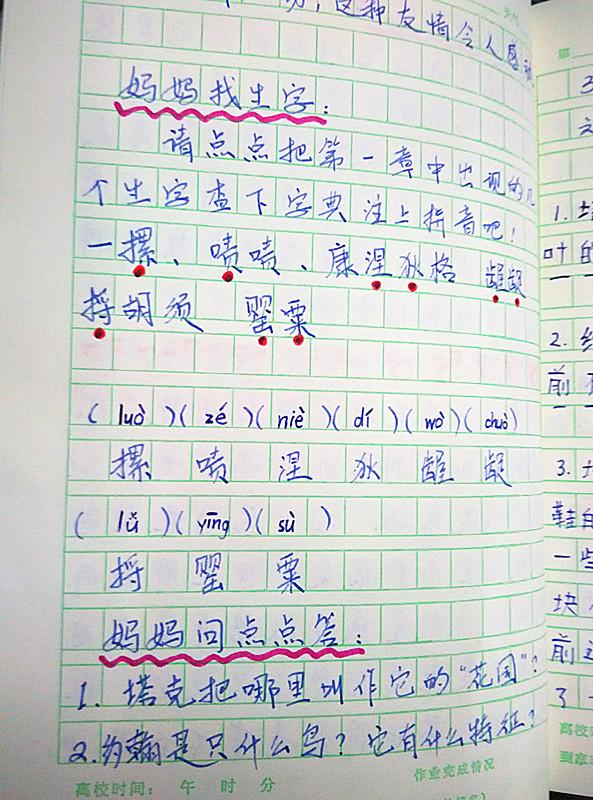 这种友情令人感动
妈妈找生字：
请点点把第一章中出现的几
个生字查下字典注上拼音吧！
一摞、啧啧、康涅狄格 龌龊
捋胡须 罂粟
( luò )( zé )( niè )( dí )( wò )( chuò )
摞 啧 涅 狄 龌 龊
( lǚ )( yīng )( sù )
捋 罂 粟
妈妈问点点答：
1. 塔克把哪里叫作它的“花园”？
2. 约翰是只什么鸟？它有什么特征？
高校时间： 午 时 分
作业完成情况
第
3
1. 塔
叶的
2.
前
3.
鞋的
一些
块
前边
3
高校
到家